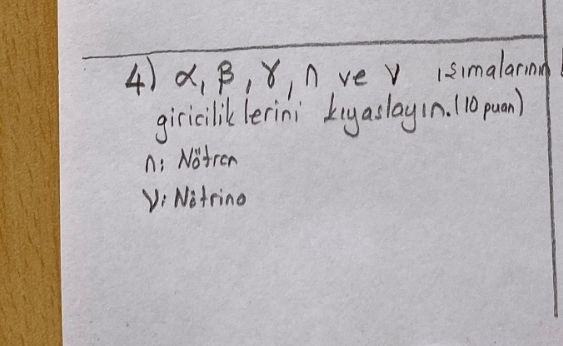 4) α, β, γ, n ve ν ışımalarının
giricilik lerini kıyaslayın. (10 puan)
n: Nötron
ν: Nötrino